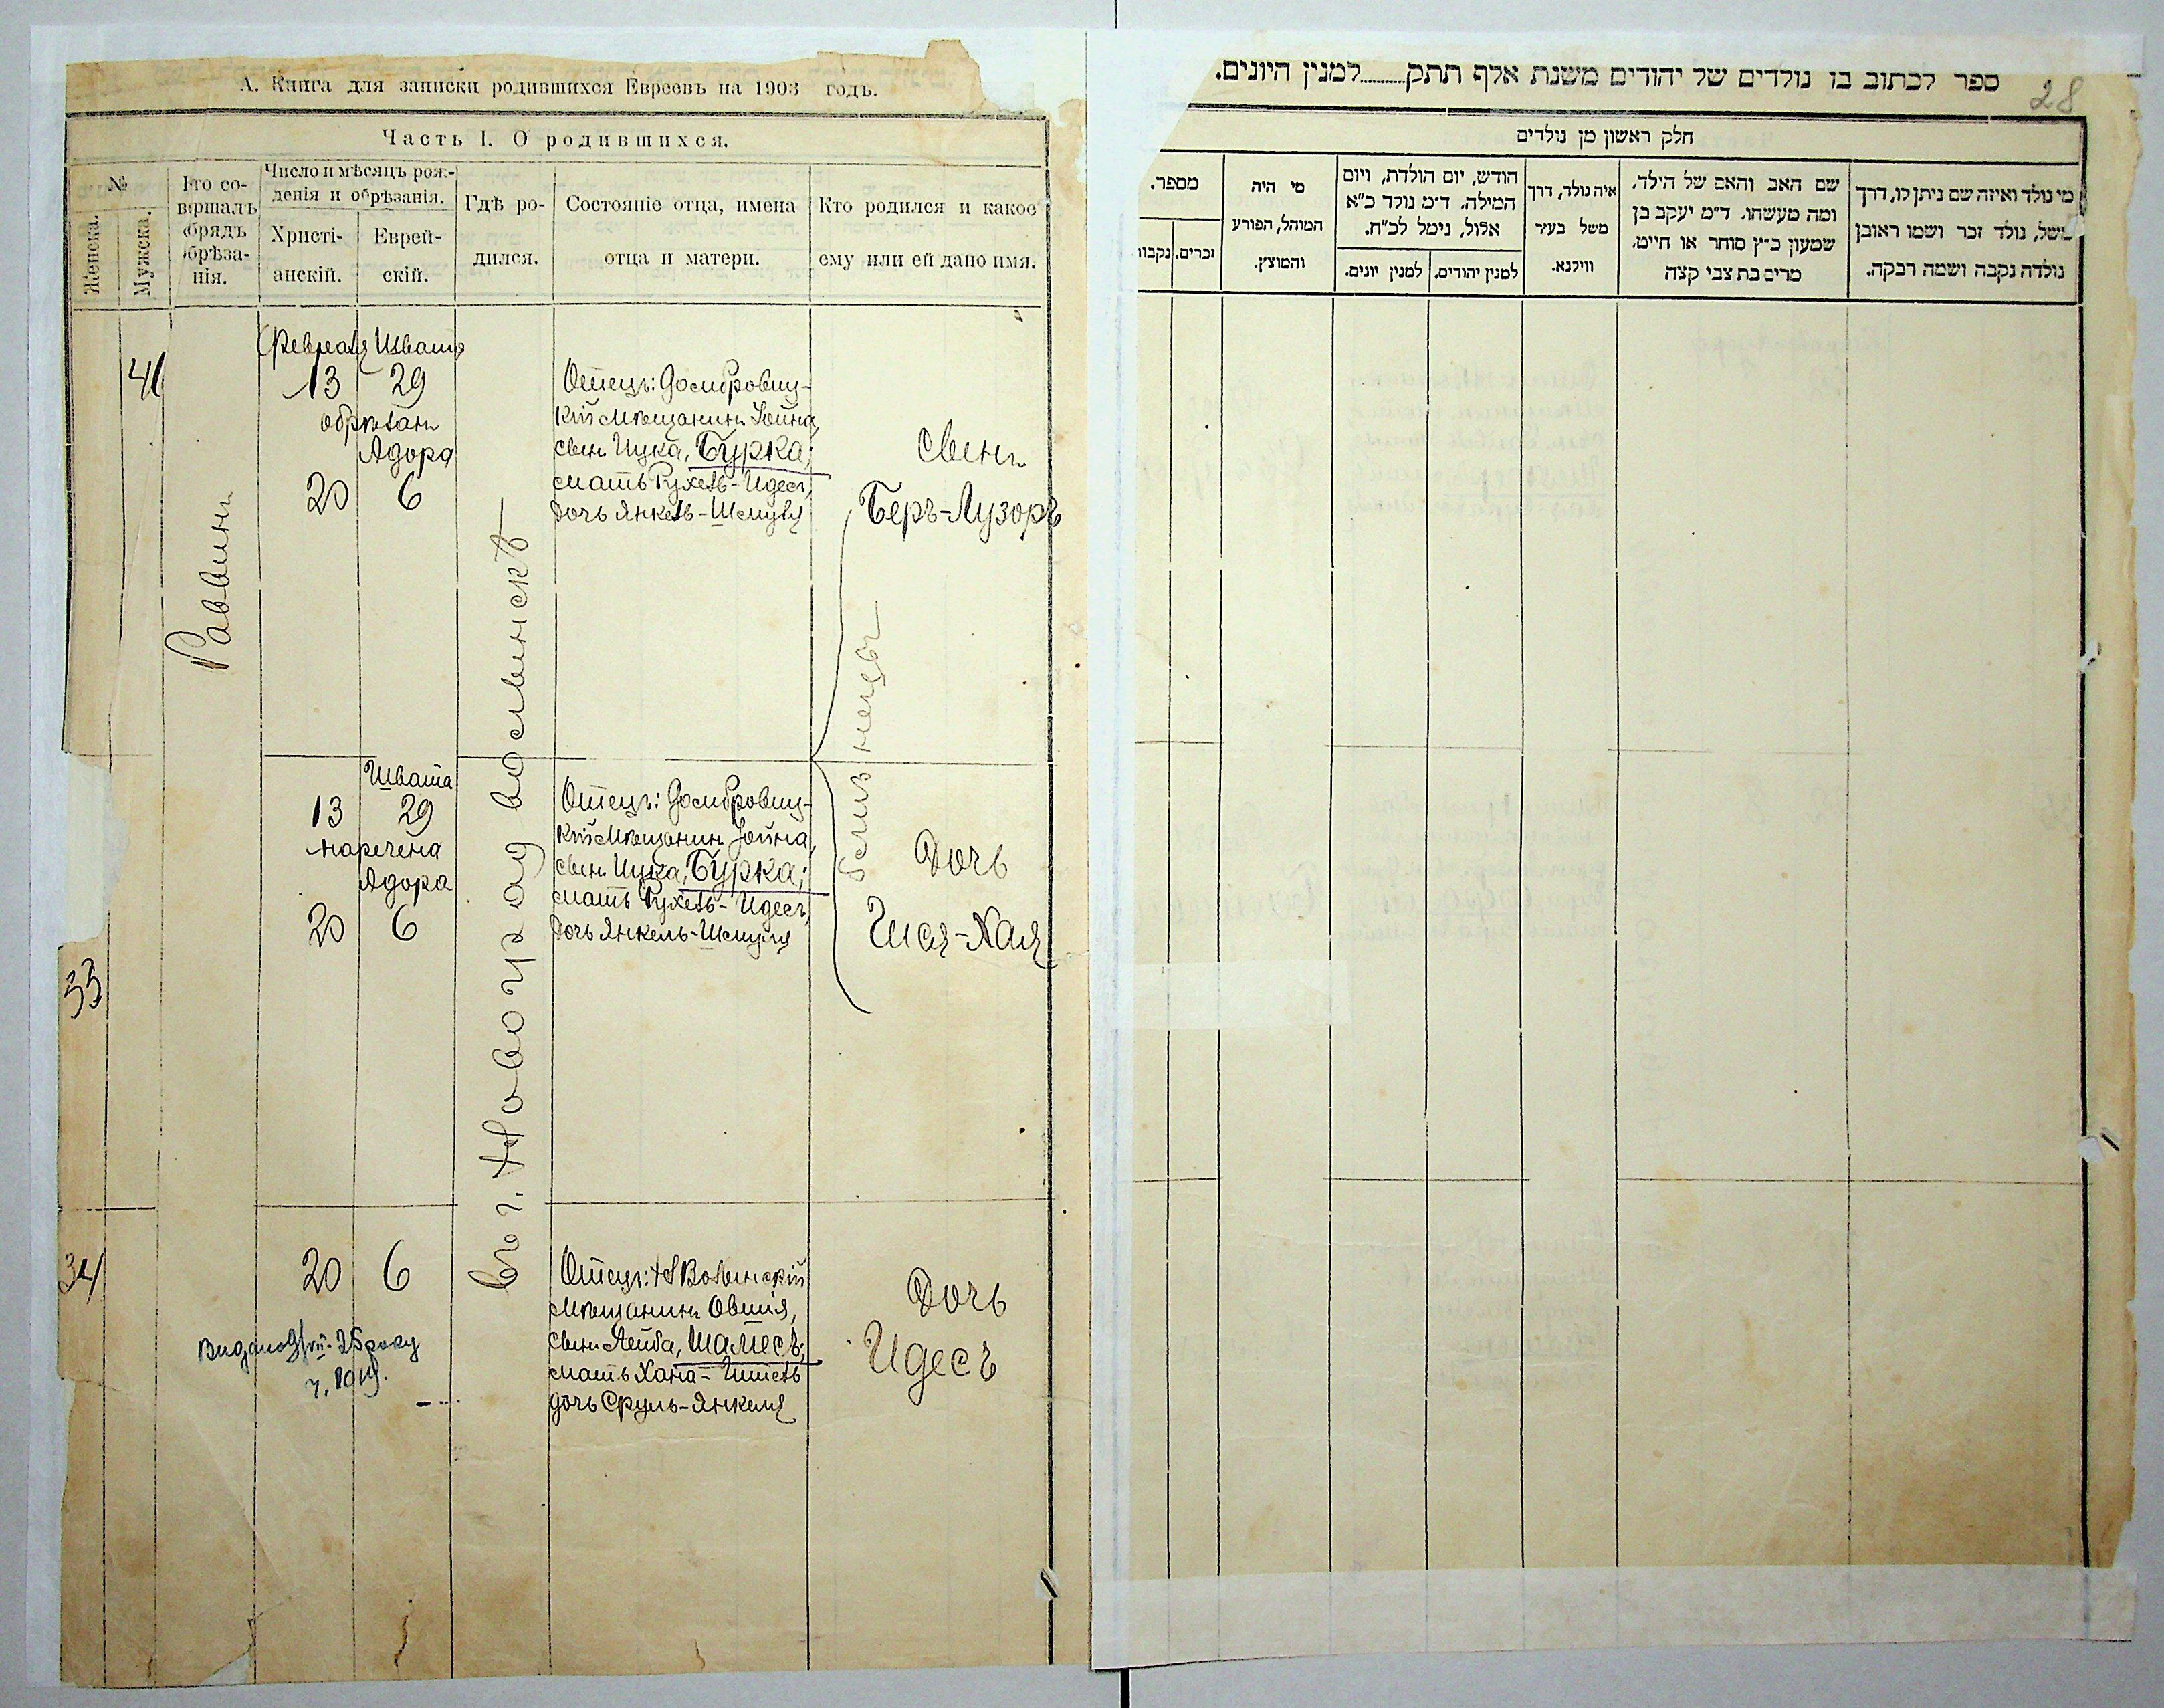 А. Книга для записки родившихся Евреевъ на 1903 годъ.
Часть I. О родившихся.
№
Женска.
Мужска.
Кто со-
вершалъ
обрядъ
обрѣза-
нія.
Число и мѣсяцъ рож-
денія и обрѣзанія.
Христі-
анскій.
Еврей-
скій.
Гдѣ ро-
дился.
Состояніе отца, имена
отца и матери.
Кто родился и какое
ему или ей дано имя.
41
Раввинъ
Февраля Швата
13 29
обрѣзанъ
Адора
20 6
въ г. Новоградволынскѣ
Отецъ: Домбровиц-
кій мѣщанинъ Іойна,
сынъ Ицка, Бурка;
мать Рухель-Идесъ,
дочь Янкель-Шмуля
сынъ
Беръ-Лузоръ
близнецы
33
Швата
13 29
наречена
Адора
20 6
Отецъ: Домбровиц-
кій мѣщанинъ Іойна,
сынъ Ицка, Бурка;
мать Рухель-Идесъ,
дочь Янкель-Шмуля
Дочь
Гися-Хая
34
20 6
Отецъ: НВолынскій
мѣщанинъ Овшія,
сынъ Лейба, Шамесъ;
мать Хана-Гитель
дочь Сруль-Янкеля
Дочь
Идесъ
Видано 9/VII-25 року
ספר לכתוב בו נולדים של יהודים משנת אלף תתק למנין היונים.
28
חלק ראשון מן נולדים
מי נולד ואיזה שם ניתן לו, דרך
משל, נולד זכר ושמו ראובן
נולדה נקבה ושמה רבקה.
שם האב והאם של הילד,
ומה מעשהו. ד״מ יעקב בן
שמעון כ״ץ סוחר או חייט,
מרים בת צבי קצה
איה נולד, דרך
משל בעיר
ווילנא.
חודש, יום הולדת, ויום
המילה. ד״מ נולד כ״א
אלול, נימל לכ״ח.
למנין יהודים.
למנין יונים.
מי היה
המוהל, הפורע
והמוצץ.
מספר.
זכרים.
נקבות